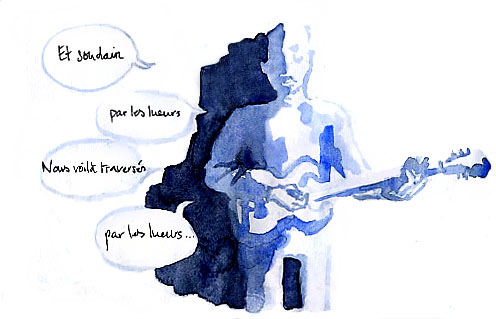 Et soudain
par les lueurs
Nous voilà traversés
par les lueurs...